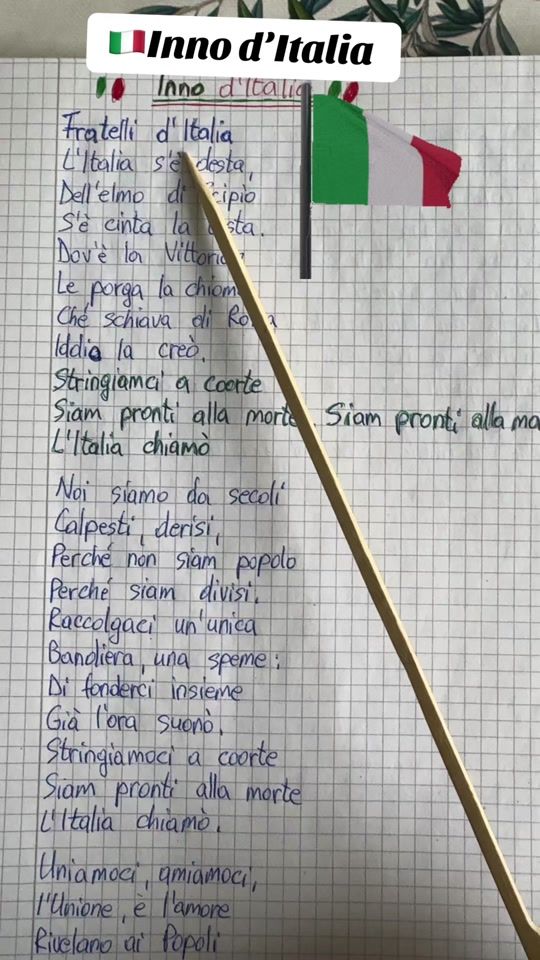 🇮🇹Inno d'Italia
Inno d'Italia
Fratelli d'Italia
L'Italia s'è desta,
Dell'elmo di Scipio
S'è cinta la testa.
Dov'è la Vittoria
Le porga la chioma
Ché schiava di Roma
Iddio la creò.
Stringiamci a coorte
Siam pronti alla morte. Siam pronti alla mo
L'Italia chiamò
Noi siamo da secoli
Calpesti, derisi,
Perché non siam popolo
Perché siam divisi.
Raccolgaci un'unica
Bandiera, una speme:
Di fonderci insieme
Già l'ora suonò.
Stringiamoci a coorte
Siam pronti alla morte
L'Italia chiamò.
Uniamoci, amiamoci,
l'Unione, è l'amore
Rivelano ai Popoli